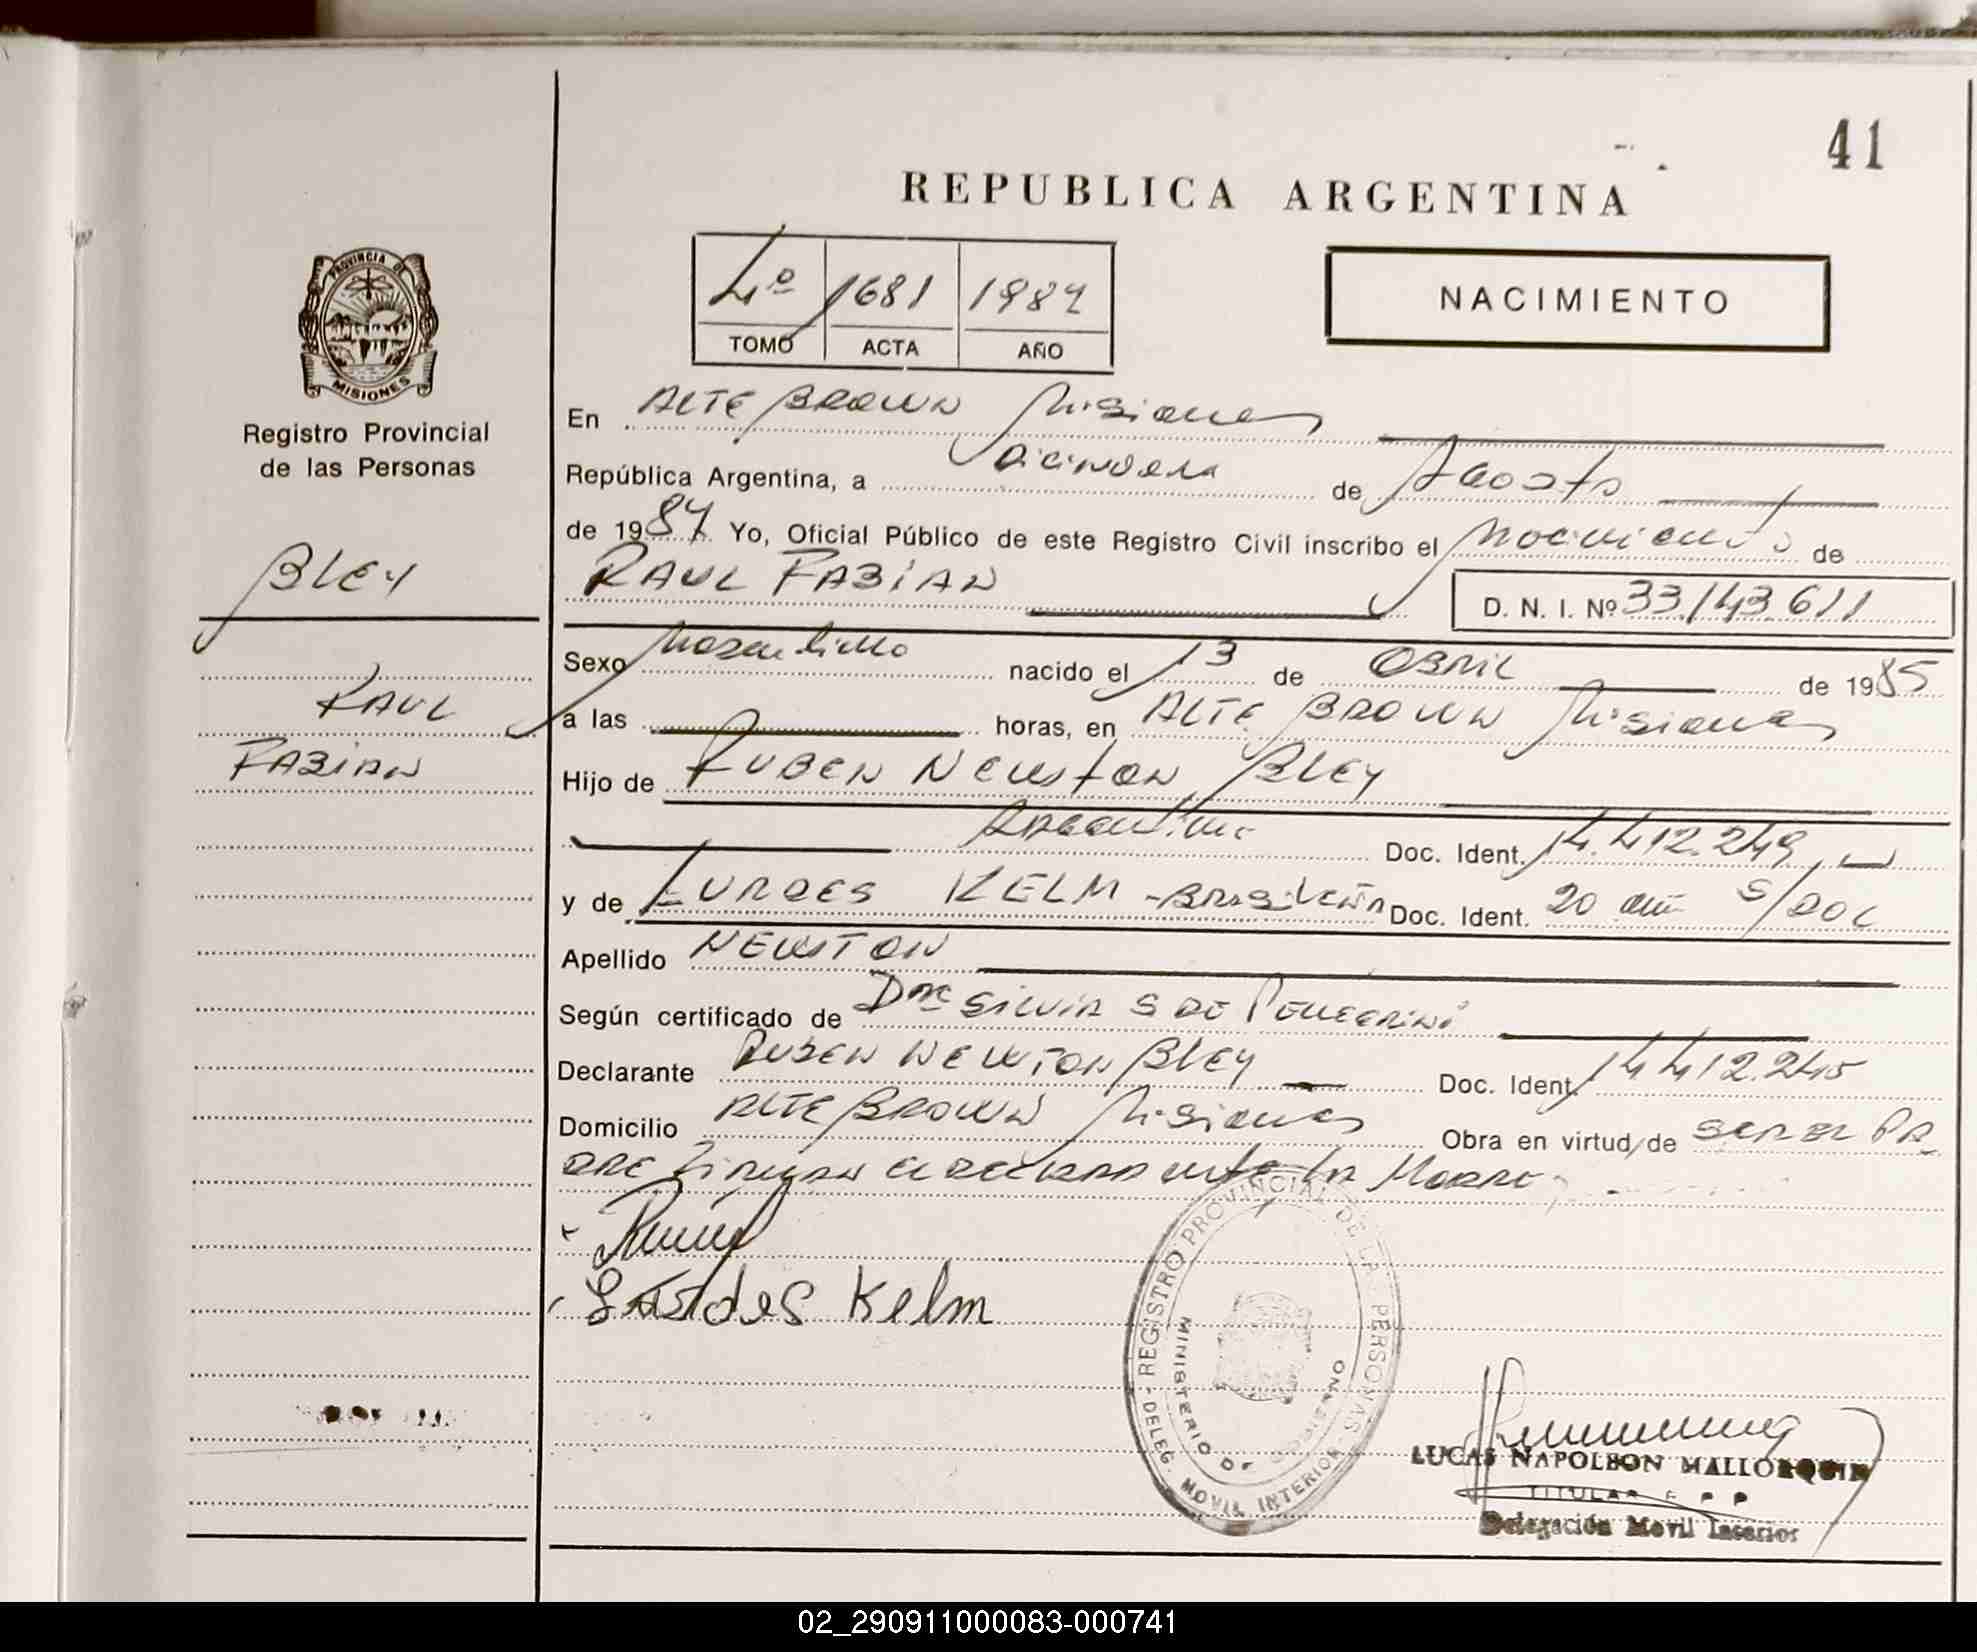 41
REPUBLICA ARGENTINA
PROVINCIA DE
MISIONES
Registro Provincial
de las Personas
4º 1681 1987
TOMO ACTA AÑO
NACIMIENTO
En ALTE BROWN Misiones
República Argentina, a de Agosto
de 1987 Yo, Oficial Público de este Registro Civil inscribo el Nacimiento de
BLEY
RAUL FABIAN
D. N. I. Nº 33.143.611
Sexo Masculino nacido el 13 de ABRIL de 1985
RAUL
a las horas, en ALTE BROWN Misiones
FABIAN
Hijo de RUBEN NEWTON BLEY
Argentino Doc. Ident. 14.412.249
y de LURDES KELM - BRASILEÑA Doc. Ident. 20 años S/DOC
Apellido NEWTON
Según certificado de Dra SILVIA S DE PELLEGRINI
Declarante RUBEN NEWTON BLEY Doc. Ident. 14.412.245
Domicilio ALTE BROWN Misiones Obra en virtud de SER EL PA
DRE FIRMAN EL DECLARANTE LA MADRE
Lurdes Kelm
REGISTRO PROVINCIAL DE LAS PERSONAS
MINISTERIO DE GOBIERNO
DELEG. MOVIL INTERIOR
LUCAS NAPOLEON MALLORQUIN
TITULAR
Delegación Movil Interior
02_290911000083-000741